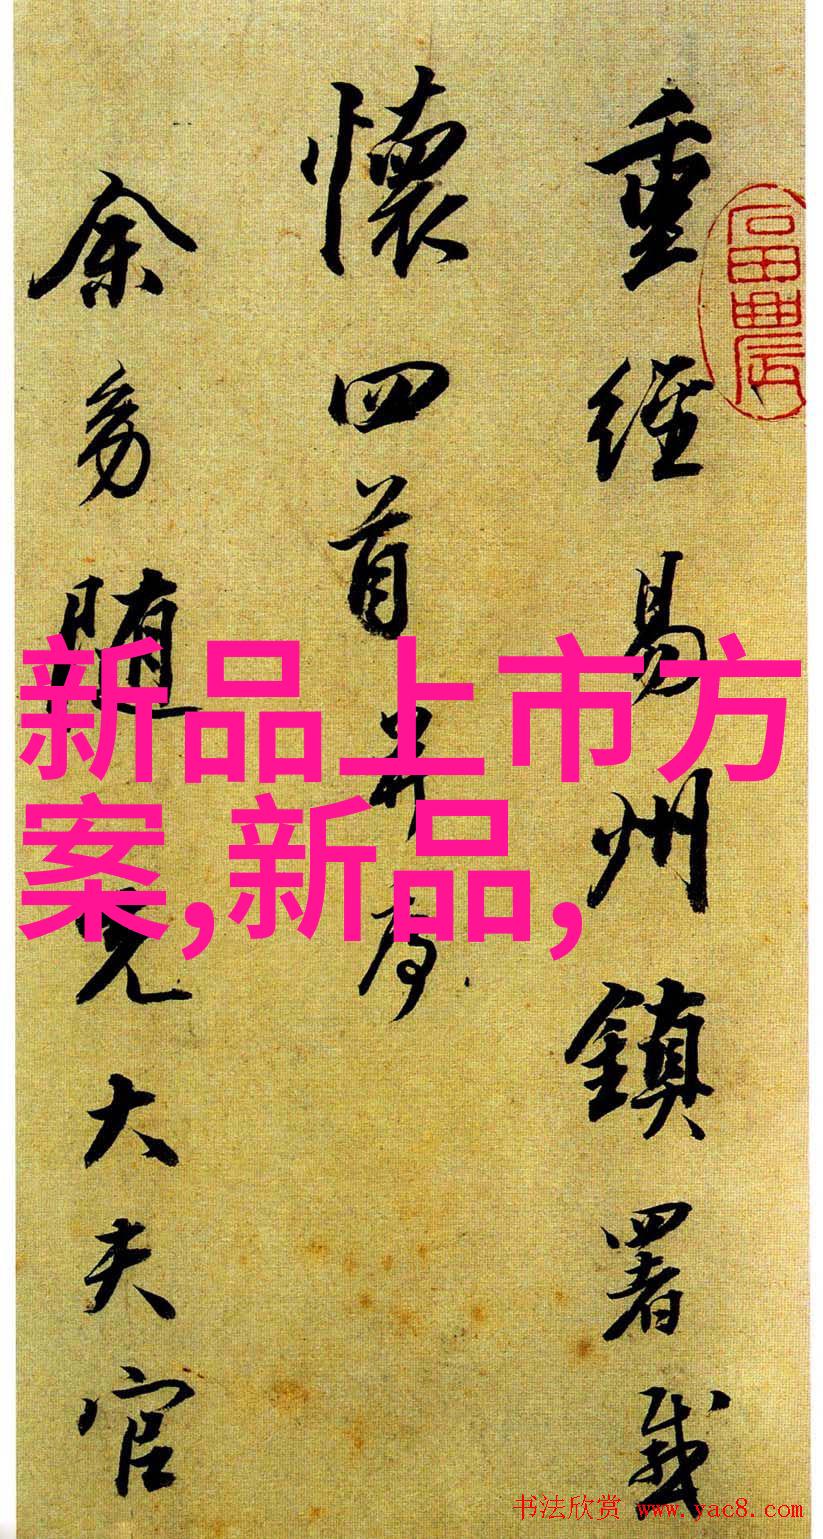 重經易州鎮署感
懷四首并序
余幼隨先大夫官
新品上市方
案,新品,
书法欣赏 www.yac8.com